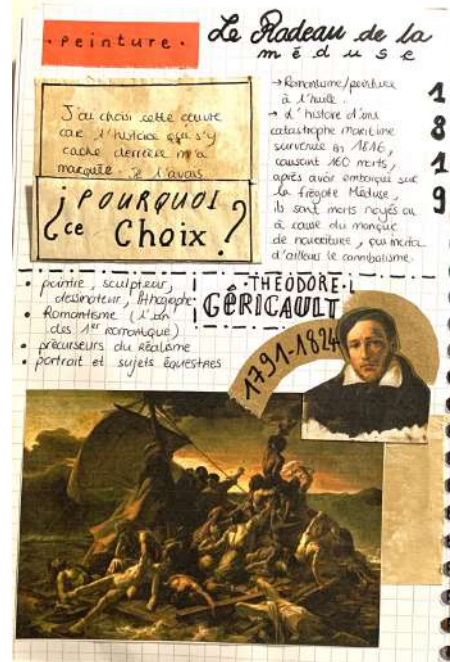 • peinture •
Le Radeau de la
méduse
J'ai choisi cette œuvre
car l'histoire qui s'y
cache derrière m'a
marquée. Je l'avais
¿POURQUOI
ce Choix ?
→ Romantisme/peinture
à l'huile.
→ L'histoire d'une
catastrophe maritime
survenue en 1816,
causant 160 morts,
après avoir embarqué sur
la frégate Méduse,
ils sont morts noyés ou
à cause du manque
de nourriture, qui
d'ailleurs le cannibalisme.
1819
• peintre, sculpteur,
dessinateur, lithographe
• Romantisme (l'un
des 1er romantique)
• précurseurs du Réalisme
• portrait et sujets équestres
•THÉODORE•L
GÉRICAULT
1791-1824